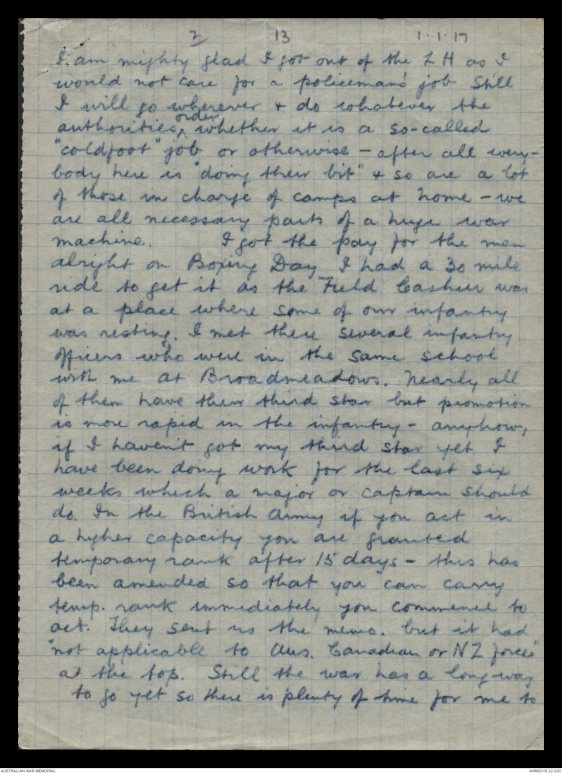 2 13 1.1.17
I am mighty glad I got out of the L H as I
would not care for a policeman's job Still
I will go wherever & do whatever the
authorities order, whether it is a so-called
"coldfoot" job or otherwise - after all every-
body here is "doing their bit" & so are a lot
of those in charge of camps at home - we
are all necessary parts of a huge war
machine. I got the pay for the men
alright on Boxing Day. I had a 30 mile
ride to get it as the Field Cashier was
at a place where some of our infantry
was resting. I met there several infantry
officers who were in the same school
with me at Broadmeadows. Nearly all
of them have their third star but promotion
is more rapid in the infantry - anyhow,
if I haven't got my third star yet I
have been doing work for the last six
weeks which a major or captain should
do. In the British Army if you act in
a higher capacity you are granted
temporary rank after 15 days - this has
been amended so that you can carry
temp. rank immediately you commence to
act. They sent us the memo. but it had
"not applicable to Aus. Canadian or NZ forces"
at the top. Still the war has a long way
to go yet so there is plenty of time for me to
AUSTRALIAN WAR MEMORIAL